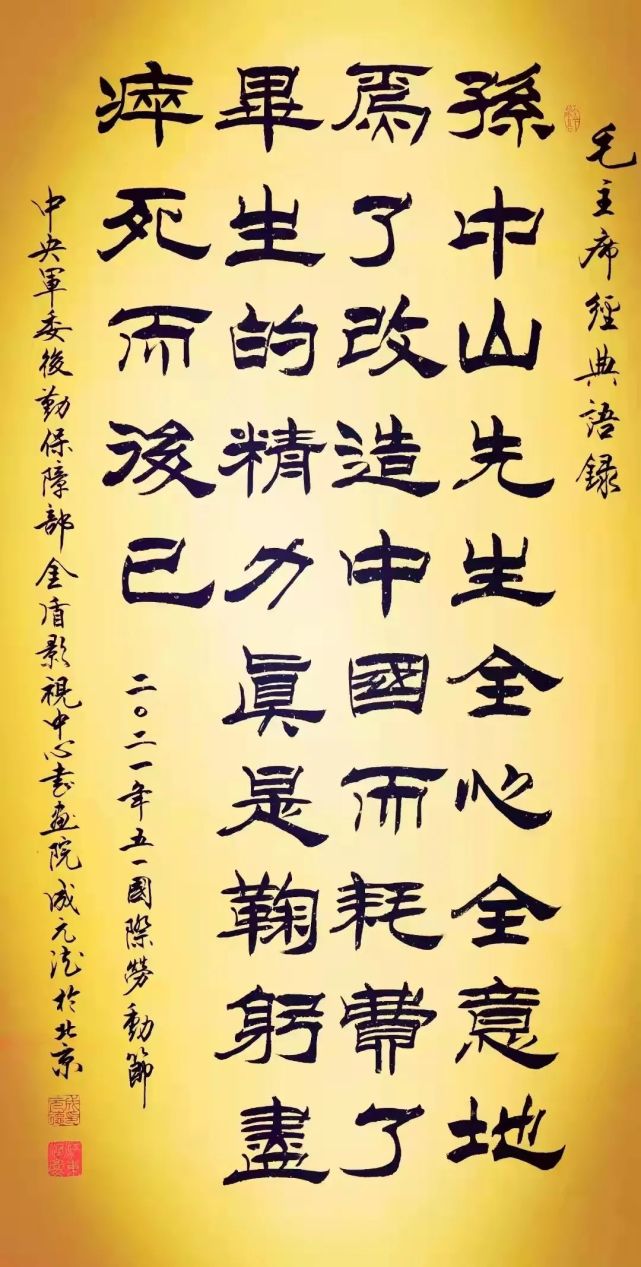 毛主席經典語録
孫中山先生全心全意地
爲了改造中國而耗費了
畢生的精力真是鞠躬盡
瘁死而後已
二〇二一年五一國際勞動節
中央軍委後勤保障部金盾影視中心書畫院成元法於北京